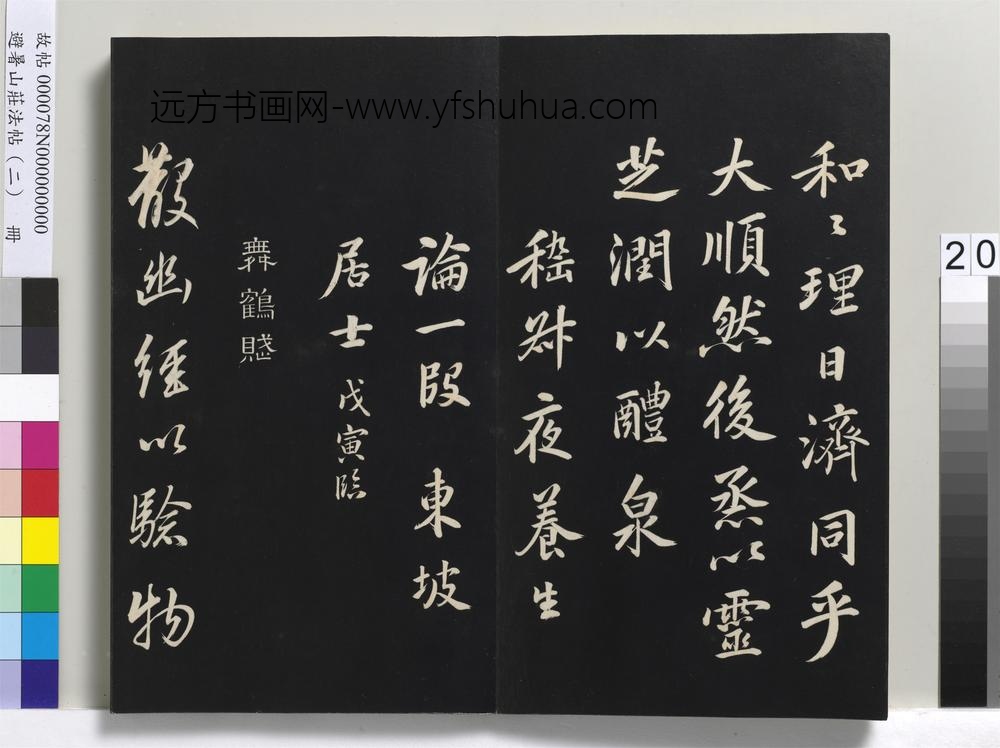 和〻理日濟同乎
大順然後烝以靈
芝潤以醴泉
嵇叔夜養生
論一段 東坡
居士 戊寅臨
舞鶴賦
散幽經以驗物
远方书画网-www.yfshuhua.com
故帖 000078N000000000
避暑山莊法帖(二) 冊
20